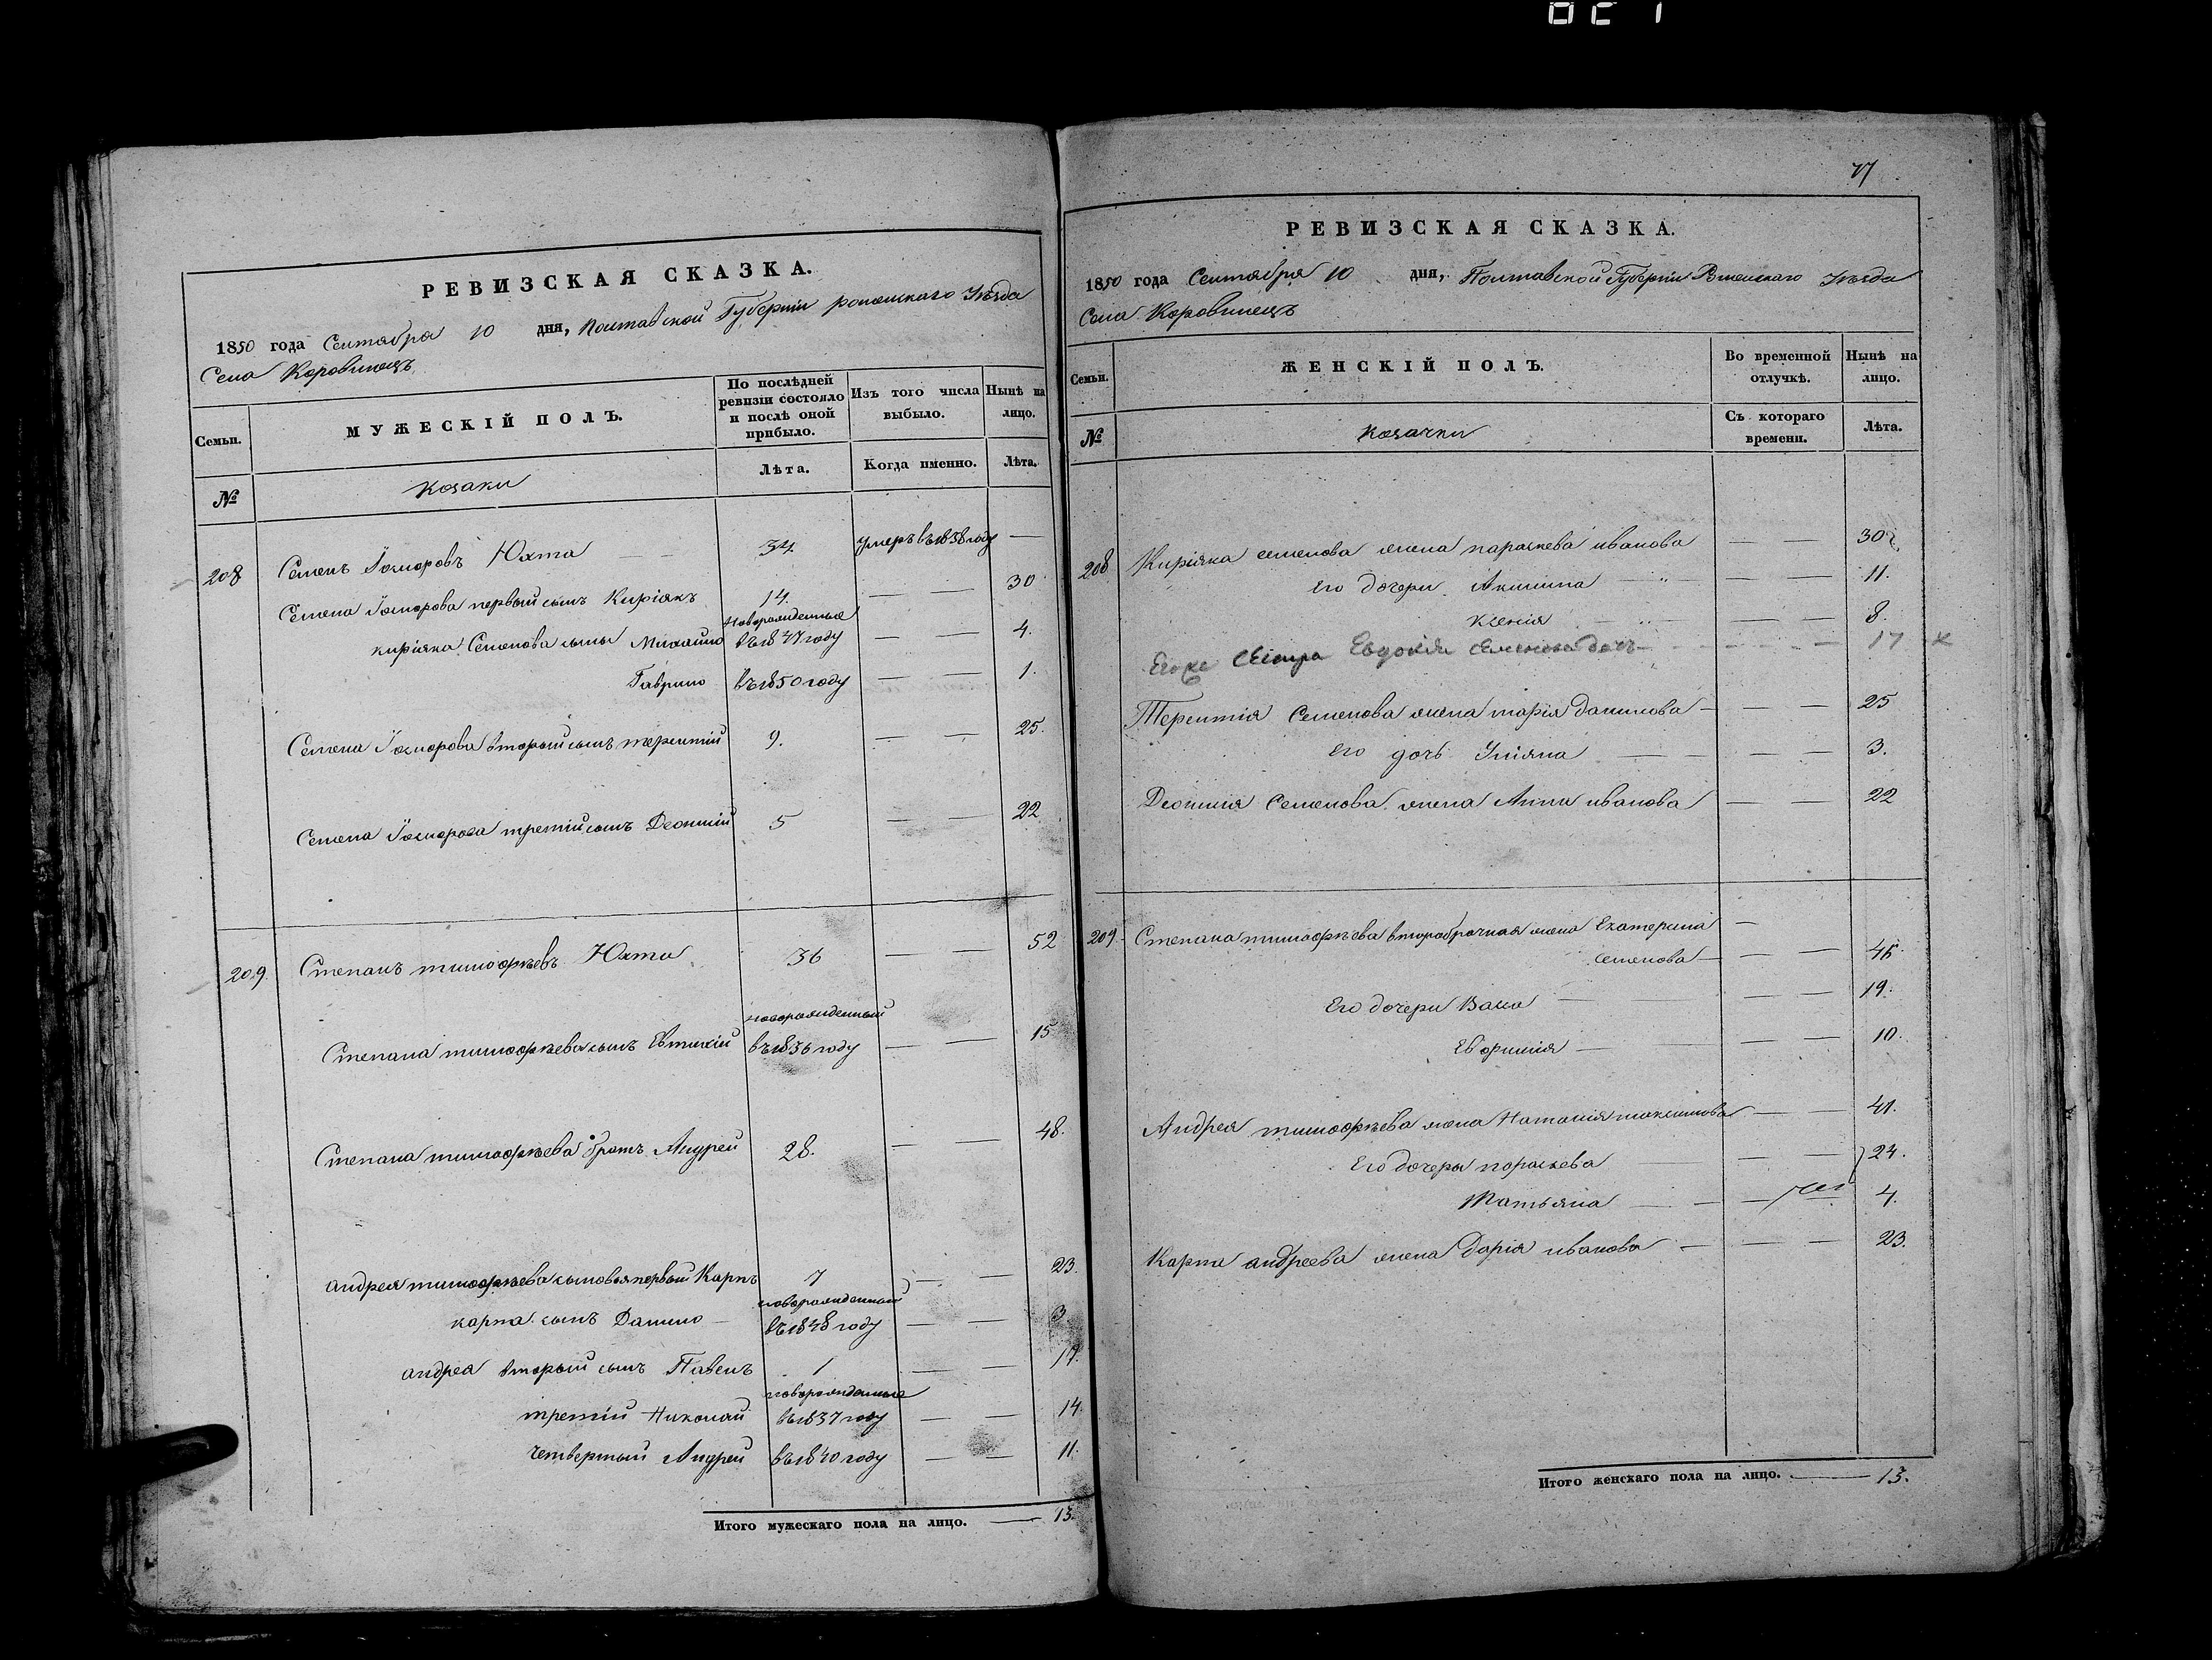 021
РЕВИЗСКАЯ СКАЗКА.
1850 года Сентября 10 дня, Полтавской Губерніи роменскаго Уѣзда
Села Коровинецъ
Семьи.
МУЖЕСКІЙ ПОЛЪ.
По послѣдней ревизіи состояло и послѣ оной прибыло.
Изъ того числа выбыло.
Нынѣ на лицо.
№
козаки
Лѣта.
Когда именно.
Лѣта.
208 Семенъ Юхта — 34. умеръ въ 1838 году —
Семена первый сынъ Киріякъ 14. — — 30
новорожденные
киріяка Семенова сыны Михайло въ 1847 году — — 4.
Гаврило въ 1850 году — — 1.
Семена второй сынъ терентій 9. — — 25.
Семена третій сынъ Леонтій 5 — — 22
209. Степанъ тимофѣевъ Юхта 36 — — 52
новорожденный
Степана тимофѣева сынъ Евтихій въ 1836 году — — 15
Степана тимофѣева братъ Андрей 28. — — 48.
андрея тимофѣева сыновья первый Карпъ 7 — — 23.
новорожденный
карпа сынъ Данило — въ 1848 году — — 3
андрея второй сынъ Павелъ 1 — — 17.
новорожденные
третій Николай въ 1837 году — — 14.
четвертый Андрей въ 1840 году — — 11.
Итого мужескаго пола на лицо. — 13.
77
РЕВИЗСКАЯ СКАЗКА.
1850 года Сентября 10 дня, Полтавской Губерніи Роменскаго Уѣзда
Села Коровинецъ
Семьи.
ЖЕНСКІЙ ПОЛЪ.
Во временной отлучкѣ.
Нынѣ на лицо.
№
козачки
Съ котораго времени.
Лѣта.
208 Киріяка семенова жена параскева иванова — — 30
Его дочери Акилина — — 11.
Ксенія — — 8.
Егоже сестра Евдокія Семенова дочь — — 17 x
Терентія Семенова жена марія данилова — — 25
Его дочь Уліяна — — 3.
Леонтія Семенова жена Анна иванова — — 22
209. Степана тимофѣева второбрачная жена Екатерина —
семенова — — 46.
Его дочери Васса — — 19.
Евфимія — — 10.
Андрея тимофѣева жена Наталія максимова — — 41.
Его дочери параскева — — 24.
Татьяна — — 4.
Карпа андреева жена Дарія иванова — — 23.
Итого женскаго пола на лицо. — 13.